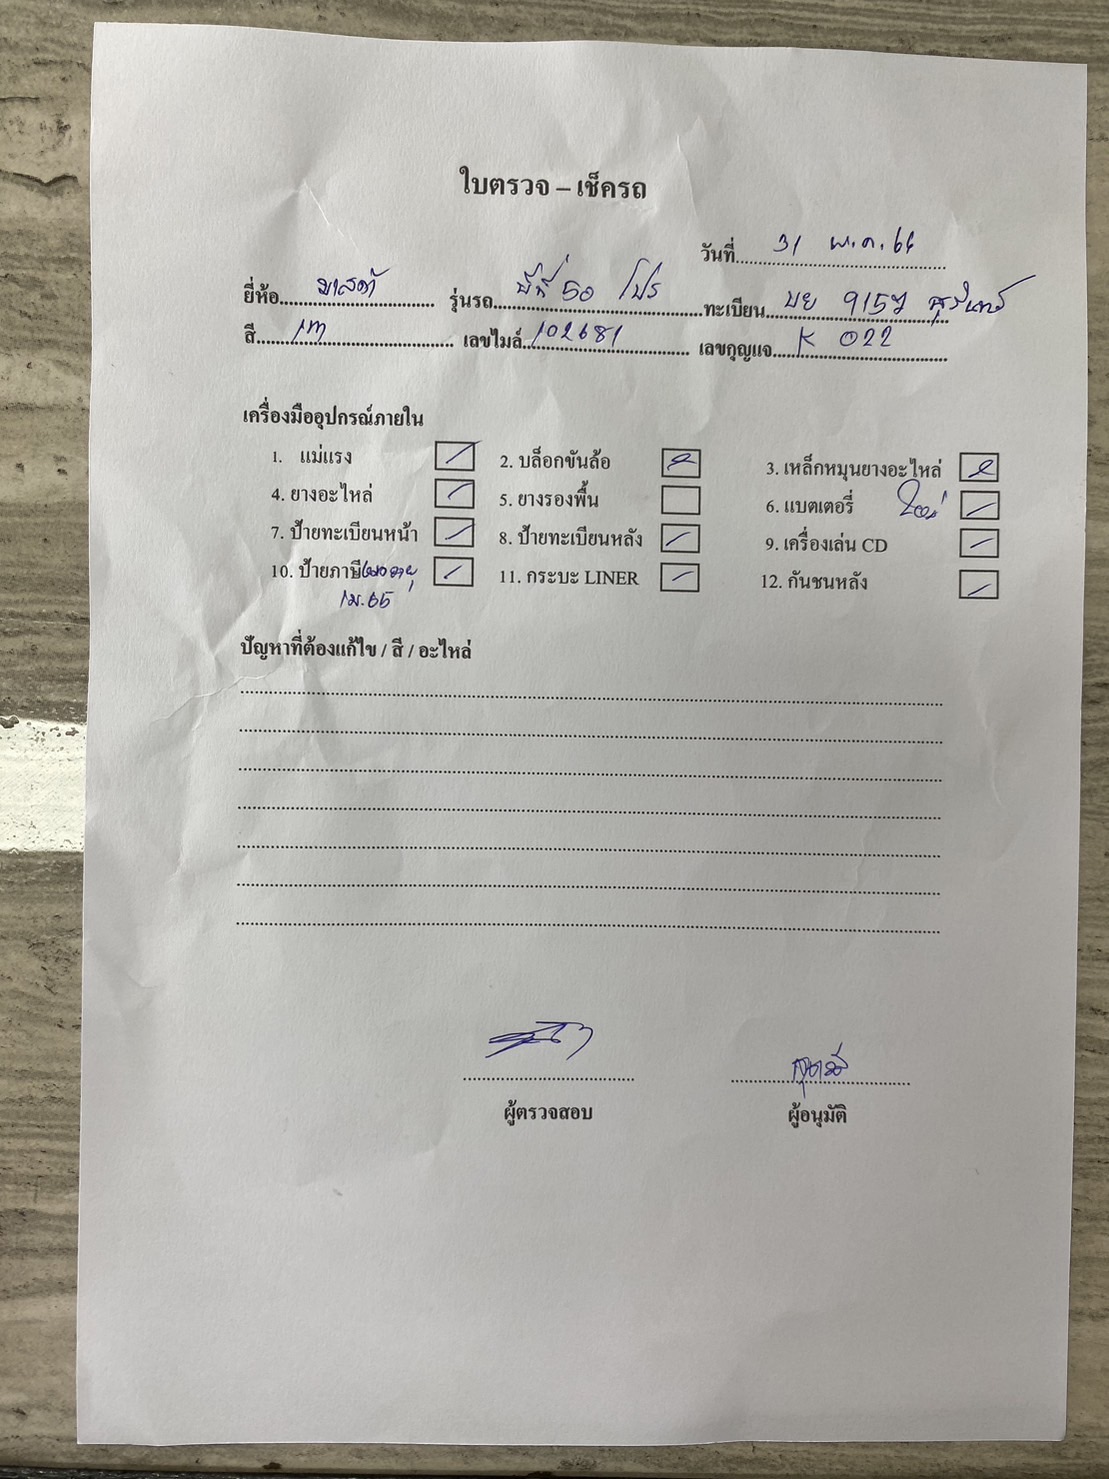 ใบตรวจ – เช็ครถ
วันที่ 31 พ.ค. 64
ยี่ห้อ มาสด้า รุ่นรถ บีที 50 โปร ทะเบียน บย 9157 สุรินทร์
สี เทา เลขไมล์ 102681 เลขกุญแจ K 022
เครื่องมืออุปกรณ์ภายใน
1. แม่แรง 2. บล็อกขันล้อ 3. เหล็กหมุนยางอะไหล่
4. ยางอะไหล่ 5. ยางรองพื้น 6. แบตเตอรี่
7. ป้ายทะเบียนหน้า 8. ป้ายทะเบียนหลัง 9. เครื่องเล่น CD
10. ป้ายภาษี หมดอายุ 11. กระบะ LINER 12. กันชนหลัง
ปัญหาที่ต้องแก้ไข / สี / อะไหล่
ผู้ตรวจสอบ ผู้อนุมัติ